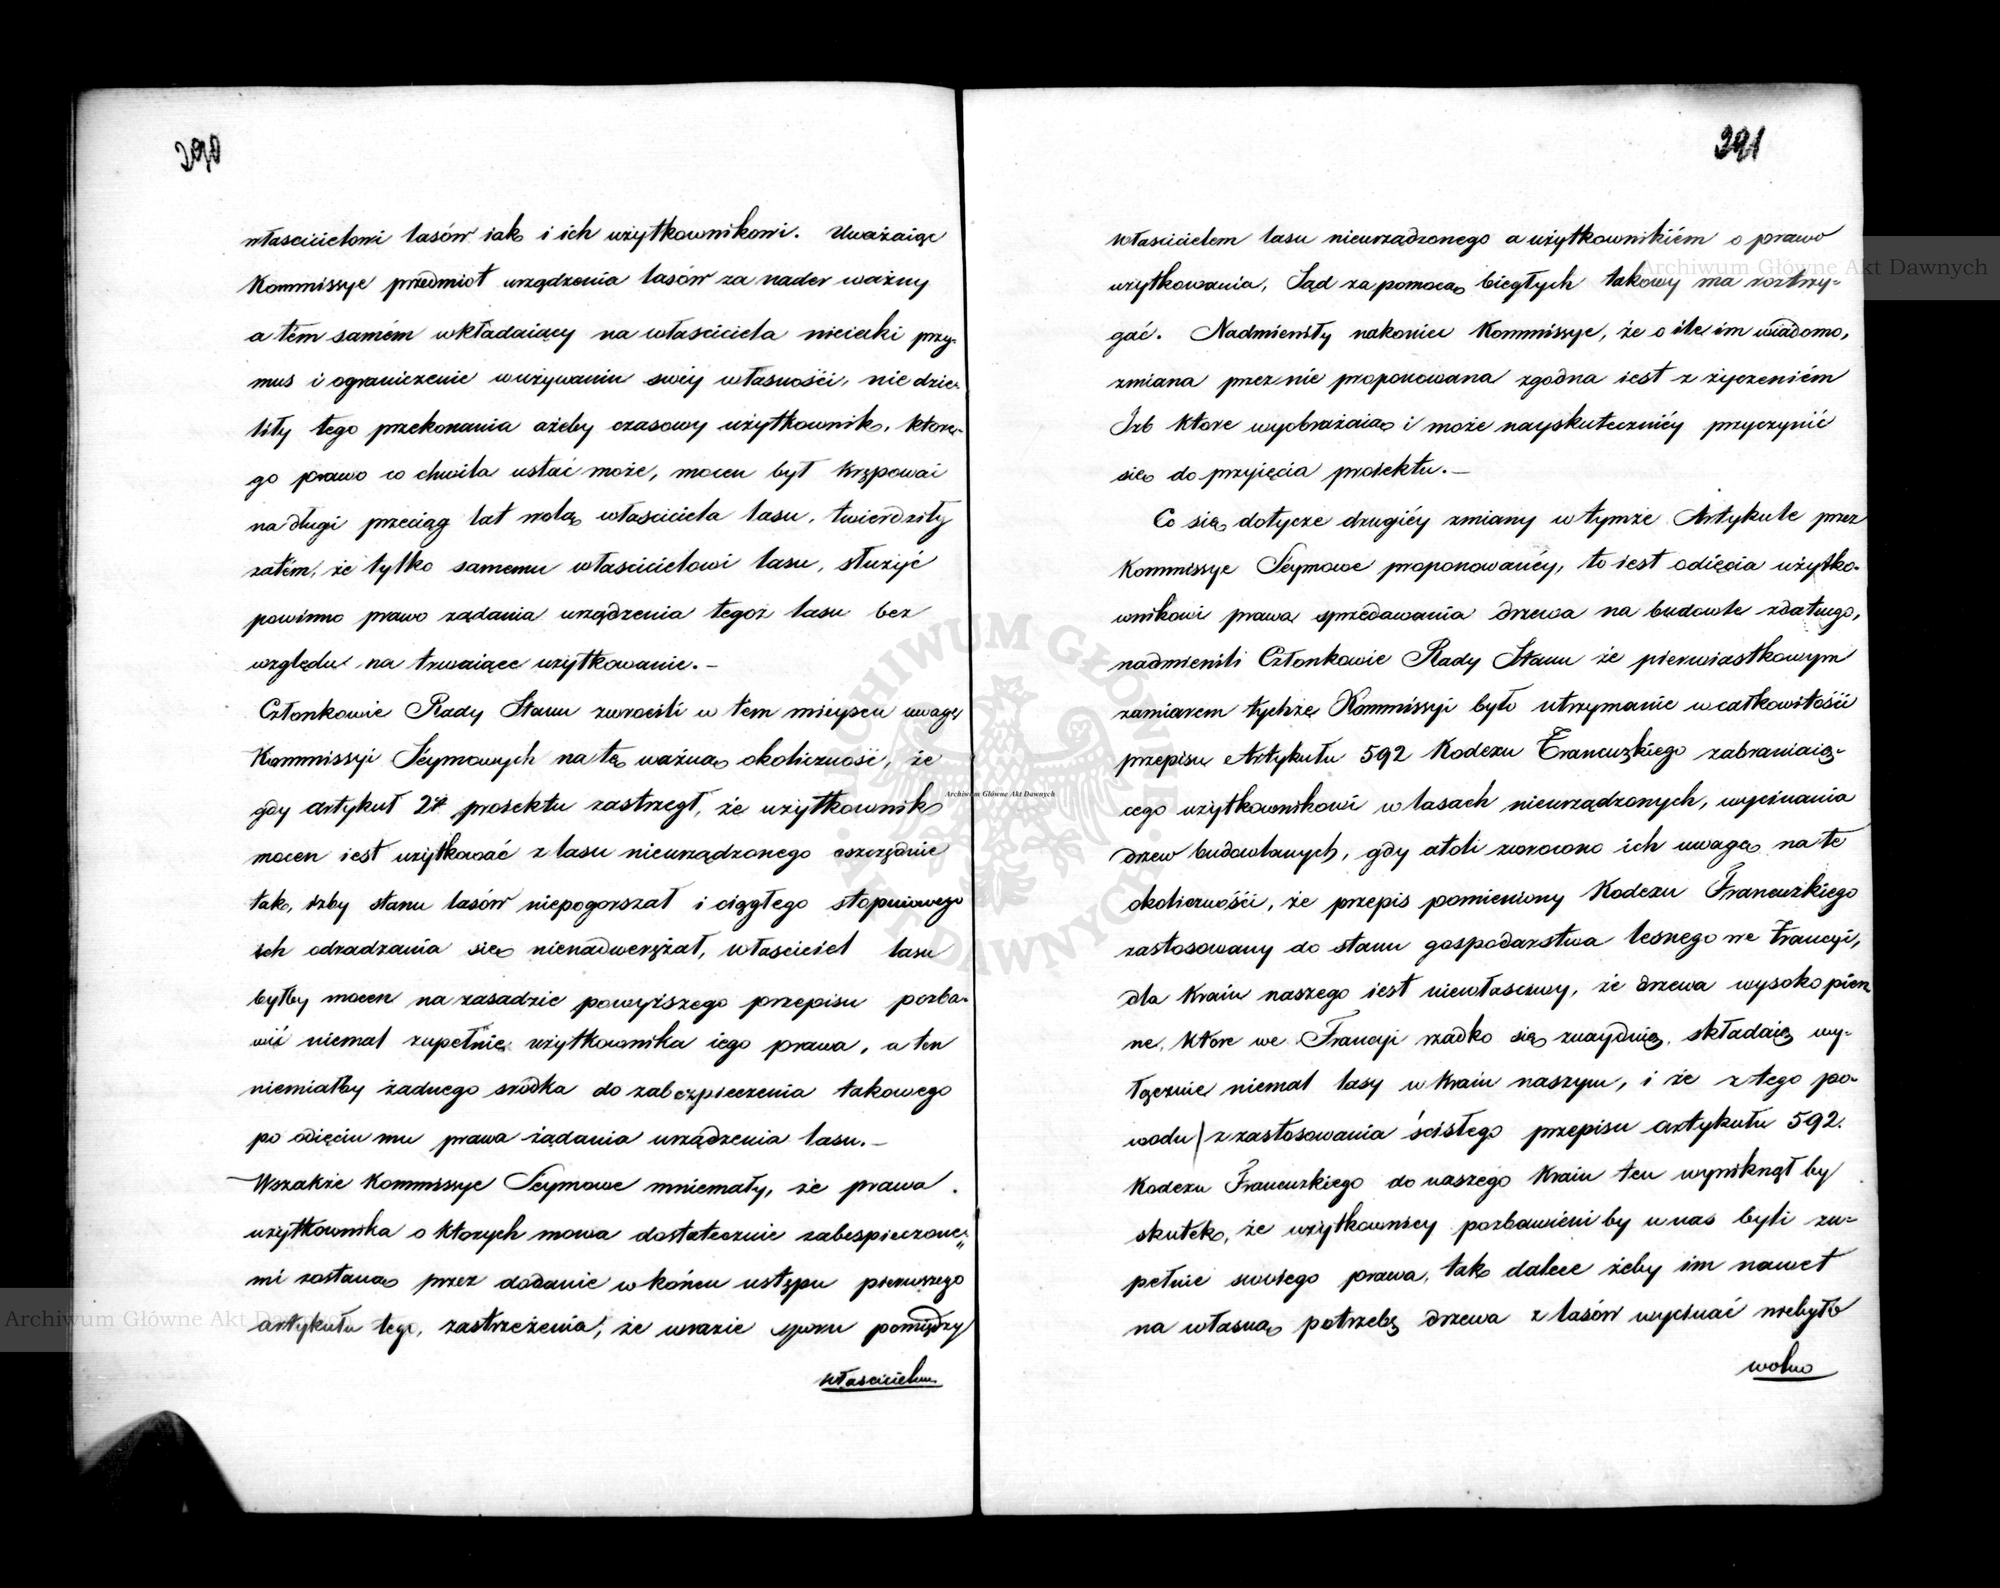 390
właścicielowi lasów iak i ich użytkownikowi. Uważaiąc
Kommissye przedmiot urządzenia lasów za nader ważny
a tém samém wkładaiący na właściciela nieiaki przy-
mus i ograniczenie w używaniu swéy własności, nie dzie-
liły tego przekonania ażeby czasowy użytkownik, które-
go prawo co chwila ustać może, mocen był krępować
na długi przeciąg lat wolą właściciela lasu, twierdziły
zatém, że tylko samemu właścicielowi lasu, służyć
powinno prawo żądania urządzenia tegoż lasu bez
względu na trwaiące użytkowanie.—
Członkowie Rady Stanu zwrócili w tem mieyscu uwagę
Kommissyi Seymowych na tę ważną okoliczność, że
gdy artykuł 24 proiektu zastrzegł, że użytkownik
mocen iest użytkować z lasu nieurządzonego oszczędnie
tak, iżby stanu lasów niepogorszał i ciągłego stopniowego
ich odradzania się nienadwerężał, właściciel lasu
byłby mocen na zasadzie powyższego przepisu pozba-
wić niemal zupełnie użytkownika iego prawa, a ten
niemiałby żadnego środka do zabezpieczenia takowego
po odięciu mu prawa żądania urządzenia lasu.—
Wszakże Kommissye Seymowe mniemały, że prawa
użytkownika o których mowa dostatecznie zabespieczone-
mi zostaną przez dodanie w końcu ustępu pierwszego
artykułu tego, zastrzeżenia, że w razie sporu pomiędzy
właścicielem
391
właścicielem lasu nieurządzonego a użytkownikiém o prawo
użytkowania, Sąd za pomocą biegłych takowy ma roztrzy-
gać. Nadmieniły nakoniec Kommissye, że o ile im wiadomo,
zmiana przez nie proponowana zgodna iest z życzeniém
Izb które wyobrażaią i może nayskuteczniéy przyczynić
się do przyięcia proiektu.—
Co się dotycze drugiéy zmiany w tymże Artykule przez
Kommissye Seymowe proponowanéy, to iest odięcia użytko-
wnikowi prawa sprzedawania drzewa na budowle zdatnego,
nadmienili Członkowie Rady Stanu że pierwiastkowym
zamiarem tychże Kommissyi było utrzymanie w całkowitości
przepisu Artykułu 592 Kodexu Francuzkiego zabraniaią-
cego użytkownikowi w lasach nieurządzonych, wycinania
drzew budowlanych, gdy atoli zwrócono ich uwagę na te
okoliczności, że przepis pomieniony Kodexu Francuzkiego
zastosowany do stanu gospodarstwa lesnego we Francyi,
dla kraiu naszego iest niewłaściwy, że drzewa wysoko pien
ne, które we Francyi rzadko się znayduią, składaią wy-
łącznie niemal lasy w kraiu naszym, i że z tego po-
wodu z zastosowania ścisłego przepisu artykułu 592.
Kodexu Francuzkiego do naszego kraiu ten wyniknął by
skutek, że użytkownicy pozbawieni by u nas byli zu-
pełnie swoiego prawa, tak dalece żeby im nawet
na własną potrzebę drzewa z lasów wycinać niebyło
wolno
Archiwum Główne Akt Dawnych
Archiwum Główne Akt Dawnych
Archiwum Główne Akt Dawnych
ARCHIWUM GŁÓWNE AKT DAWNYCH